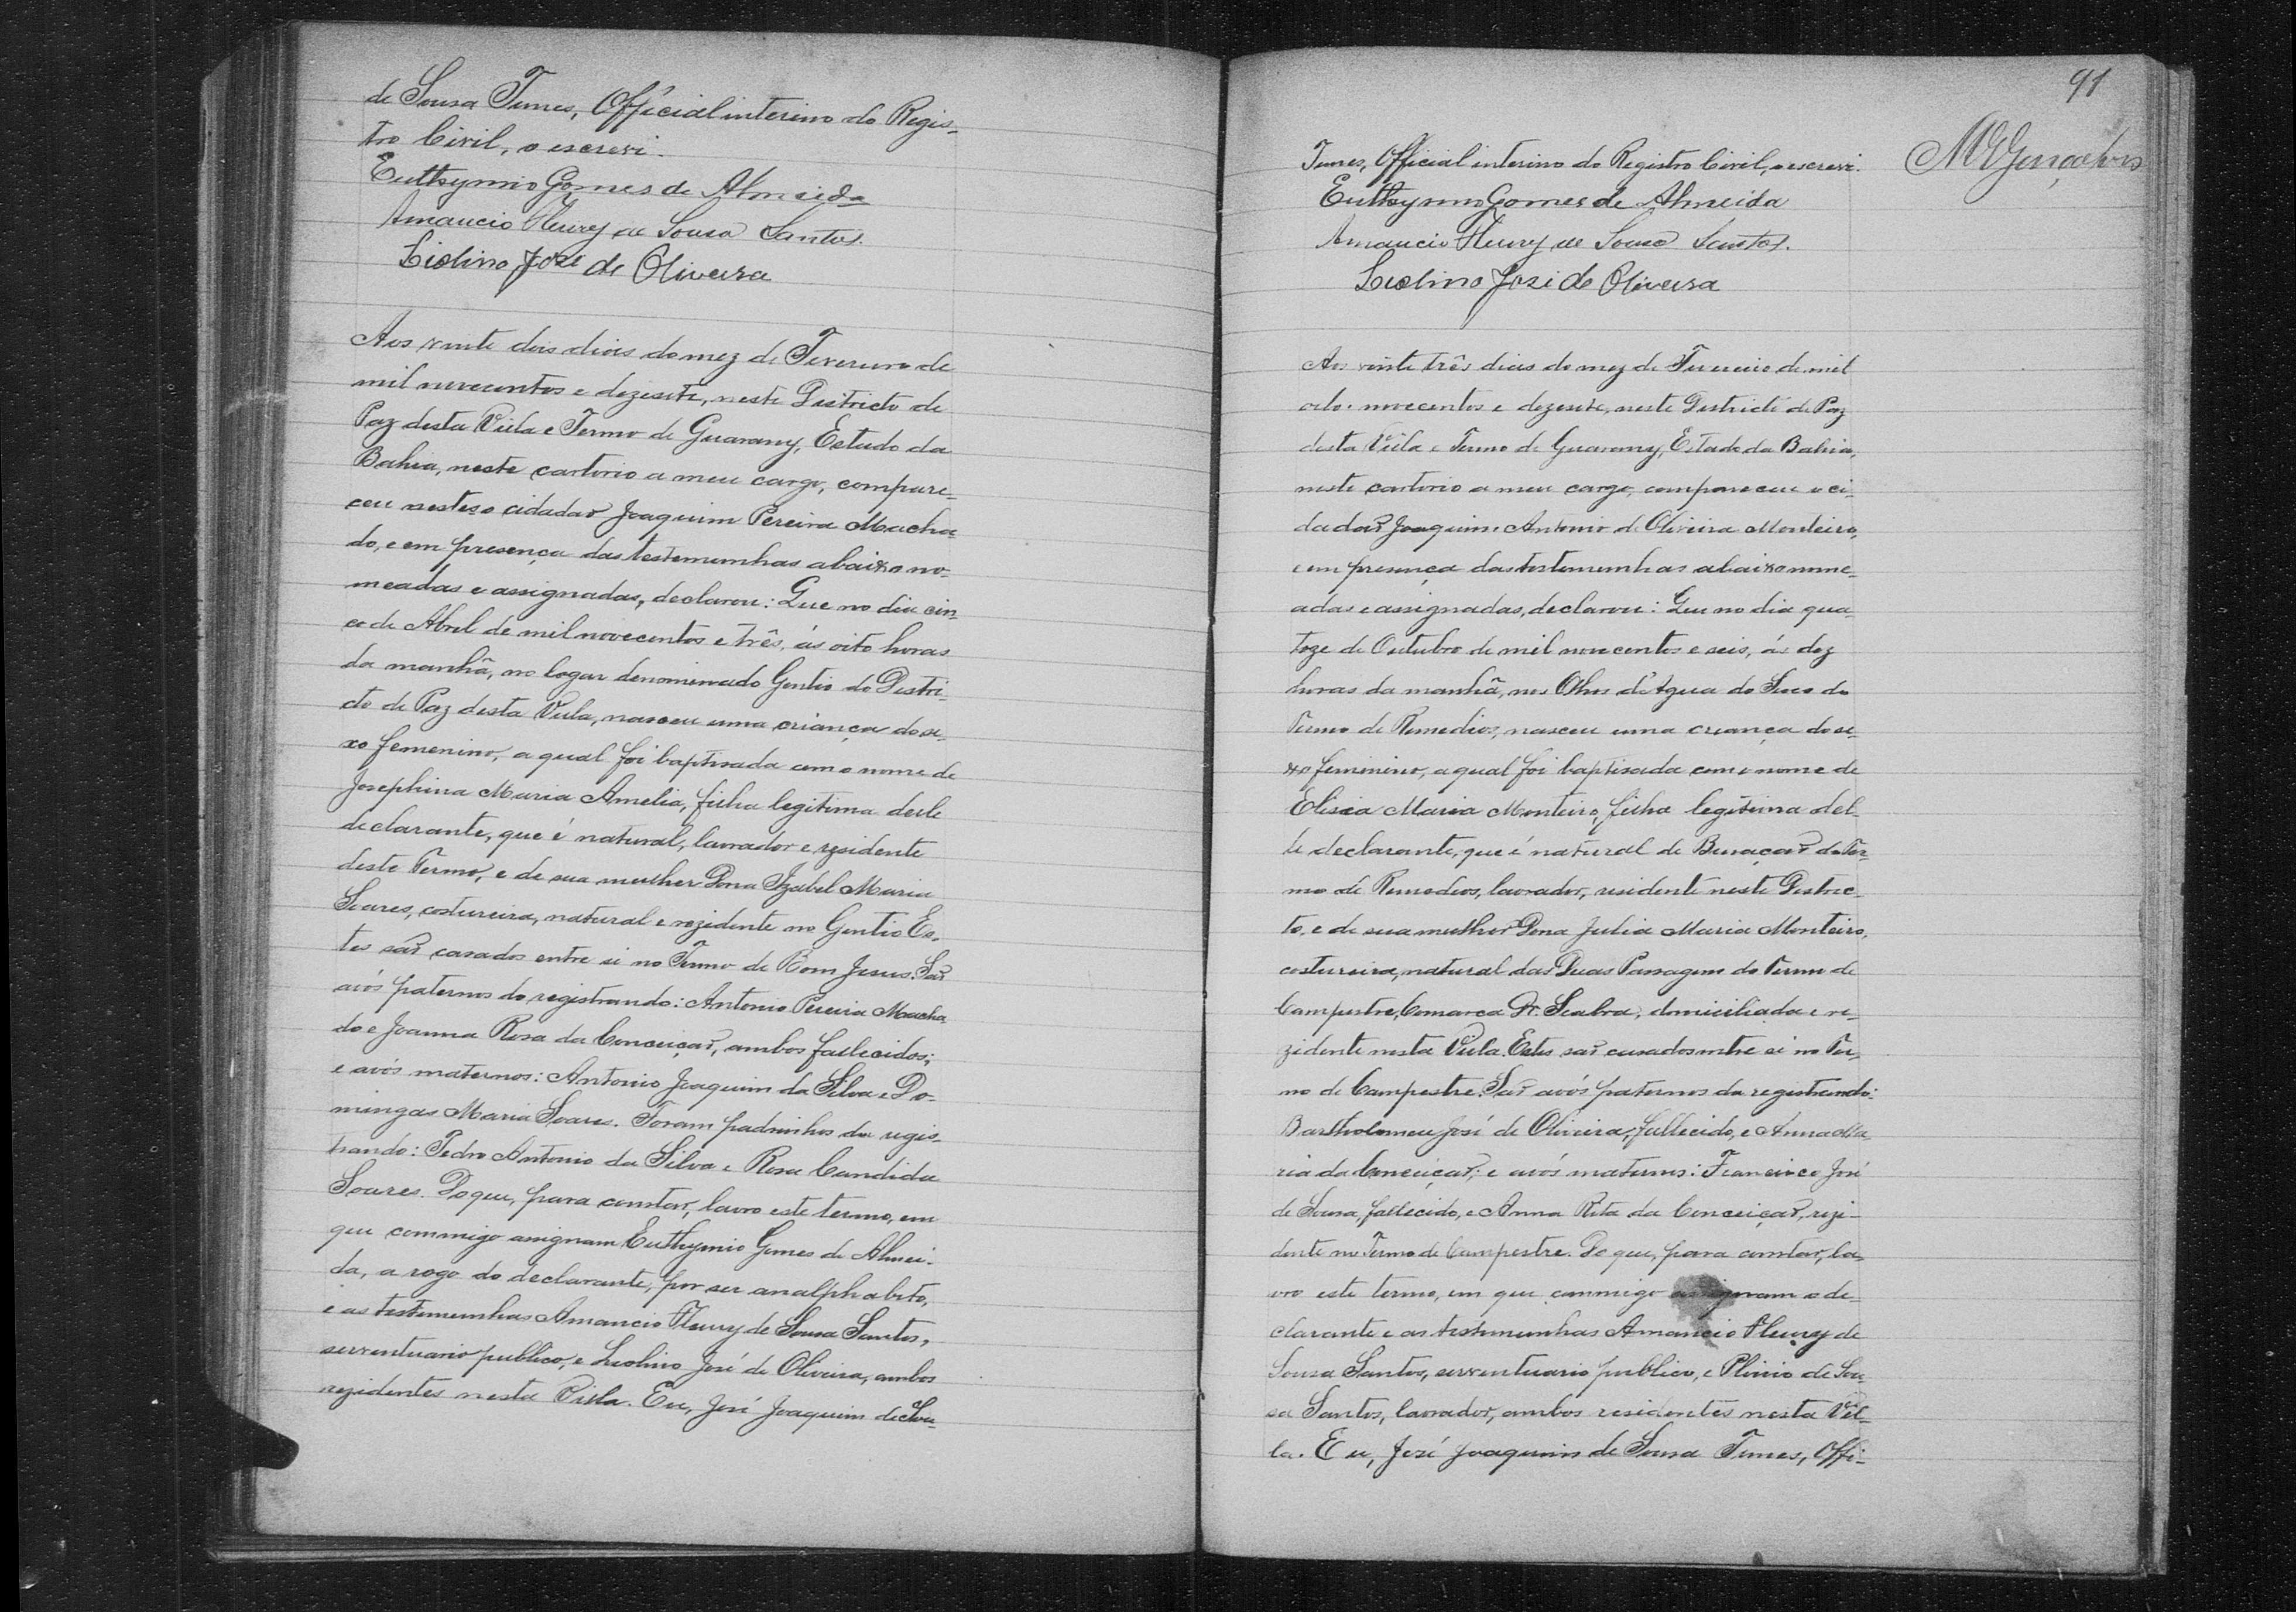 de Sousa Tunes, Official interino do Regis-
tro Civil, o escrevi.
Euthymio Gomes de Almeida
Amancio Fleury de Sousa Santos.
Liolino José de Oliveira
Aos vinte dois dias do mez de Fevereiro de
mil novecentos e dezesete, neste Districto de
Paz desta Villa e Termo de Guarany, Estado da
Bahia, neste cartorio a meu cargo, compare-
ceu nestes o cidadão Joaquim Pereira Macha
do, e em presença das testemunhas abaixo no-
meadas e assignadas, declarou: Que no dia cin-
co de Abril de mil novecentos e três, ás oito horas
da manhã, no logar denominado Gentio do Distri-
cto de Paz desta Villa, nasceu uma criança do se-
xo femenino, a qual foi baptisada com o nome de
Josephina Maria Amelia, filha legitima delle
declarante, que é natural, lavrador e rezidente
deste Termo, e de sua mulher Dona Izabel Maria
Soares, costureira, natural e rezidente no Gentio Es-
tes são casados entre si no Termo de Bom Jesus. São
avós paternos do registrando: Antonio Pereira Macha
do e Joanna Rosa da Conceição, ambos fallecidos;
e avós maternos: Antonio Joaquim da Silva e Do-
mingas Maria Soares. Foram padrinhos da regis-
trando: Pedro Antonio da Silva e Rosa Candida
Soares. Do que, para constar, lavro este termo, em
que commigo assignam Euthymio Gomes de Almei-
da, a rogo do declarante, por ser analphabeto,
e as testemunhas Amancio Fleury de Sousa Santos,
serventuario publico, e Liolino José de Oliveira, ambos
rezidentes nesta Villa. Eu, José Joaquim de Sou-
91
Tunes, Official interino do Registro Civil, o escrevi.
MEGonçalves
Euthymio Gomes de Almeida
Amancio Fleury de Sousa Santos.
Liolino José de Oliveira
Aos vinte três dias do mez de Fevereiro de mil
oito. novecentos e dezesete, neste Districto de Paz
desta Villa e Termo de Guarany, Estado da Bahia,
neste cartorio a meu cargo, compareceu o ci-
dadão Joaquim Antonio de Oliveira Monteiro,
e em presença das testemunhas abaixo nome-
adas e assignadas, declarou: Que no dia qua-
toze de Outubro de mil novecentos e seis, ás dez
horas da manhã, nos Olhos d'Agua do Seco do
Termo de Remedios, nasceu uma criança do se-
xo feminino, a qual foi baptisada com o nome de
Elisia Maria Monteiro, filha legitima del-
le declarante, que é natural de Buração do Ter-
mo de Remedios, lavrador, residente neste Distric-
to, e de sua mulher Dona Julia Maria Monteiro,
costureira, natural das Duas Passagens do Termo de
Campestre, Comarca Dr. Seabra, domiciliada e re-
zidente nesta Villa. Estes são casados entre si no Ter-
mo de Campestre. São avós paternos da registrando:
Bartholomeu José de Oliveira, fallecido, e Anna Ma
ria da Conceição; e avós maternos: Francisco José
de Sousa, fallecido, e Anna Rita da Conceição, rezi-
dente no Termo de Campestre. Do que, para constar, la-
vro este termo, em que commigo assignam o de-
clarante e as testemunhas Amancio Fleury de
Sousa Santos, serventuario publico, e Plinio de Sou-
sa Santos, lavrador, ambos residentes nesta Vil-
la. Eu, José Joaquim de Sousa Tunes, Offi-